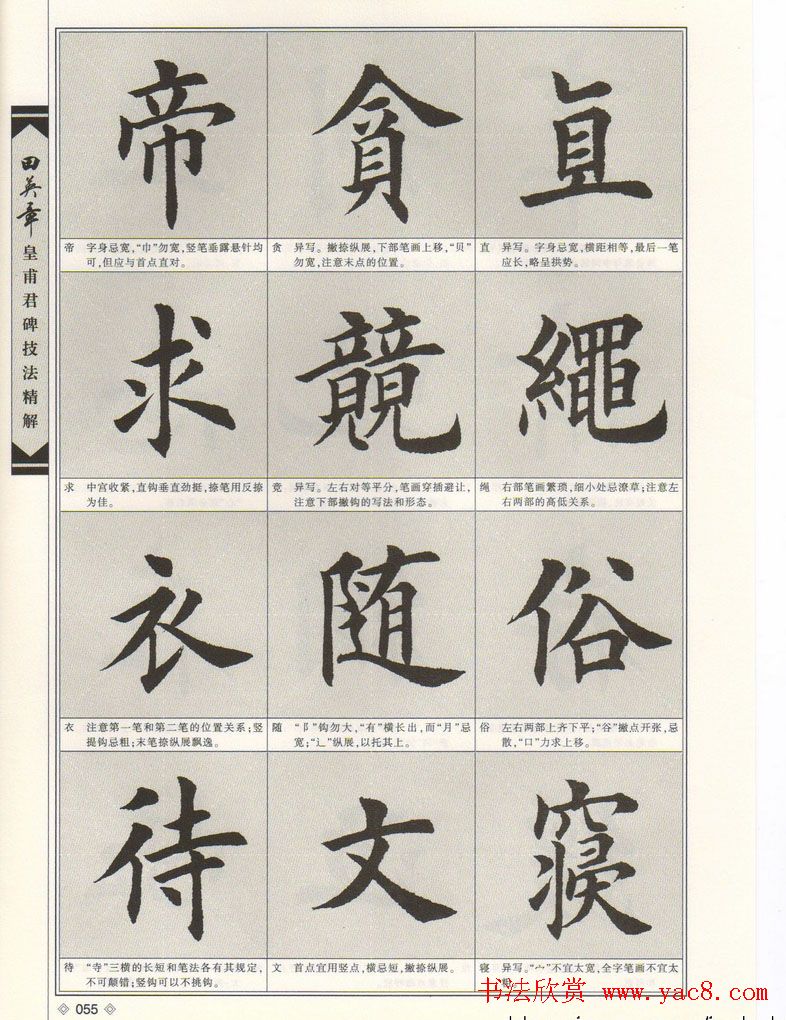 田英章
皇甫君碑技法精解
帝 貪 直
帝 字身忌宽,“巾”勿宽,竖笔垂露悬针均
可,但应与首点直对。
贪 异写。撇捺纵展,下部笔画上移,“贝”
勿宽,注意末点的位置。
直 异写。字身忌宽,横距相等,最后一笔
应长,略呈拱势。
求 競 繩
求 中宫收紧,直钩垂直劲挺,捺笔用反捺
为佳。
竞 异写。左右对等平分,笔画穿插避让,
注意下部撇钩的写法和形态。
绳 右部笔画繁琐,细小处忌潦草;注意左
右两部的高低关系。
衣 随 俗
衣 注意第一笔和第二笔的位置关系;竖
提钩忌粗;末笔捺纵展飘逸。
随 “阝”钩勿大,“有”横长出,而“月”忌
宽;“辶”纵展,以托其上。
俗 左右两部上齐下平;“谷”撇点开张,忌
散,“口”力求上移。
待 文 寢
待 “寺”三横的长短和笔法各有其规定,
不可颠错;竖钩可以不挑钩。
文 首点宜用竖点,横忌短,撇捺纵展。
寝 异写。“宀”不宜太宽,全字笔画不宜太
书法欣赏 www.yac8.com
055